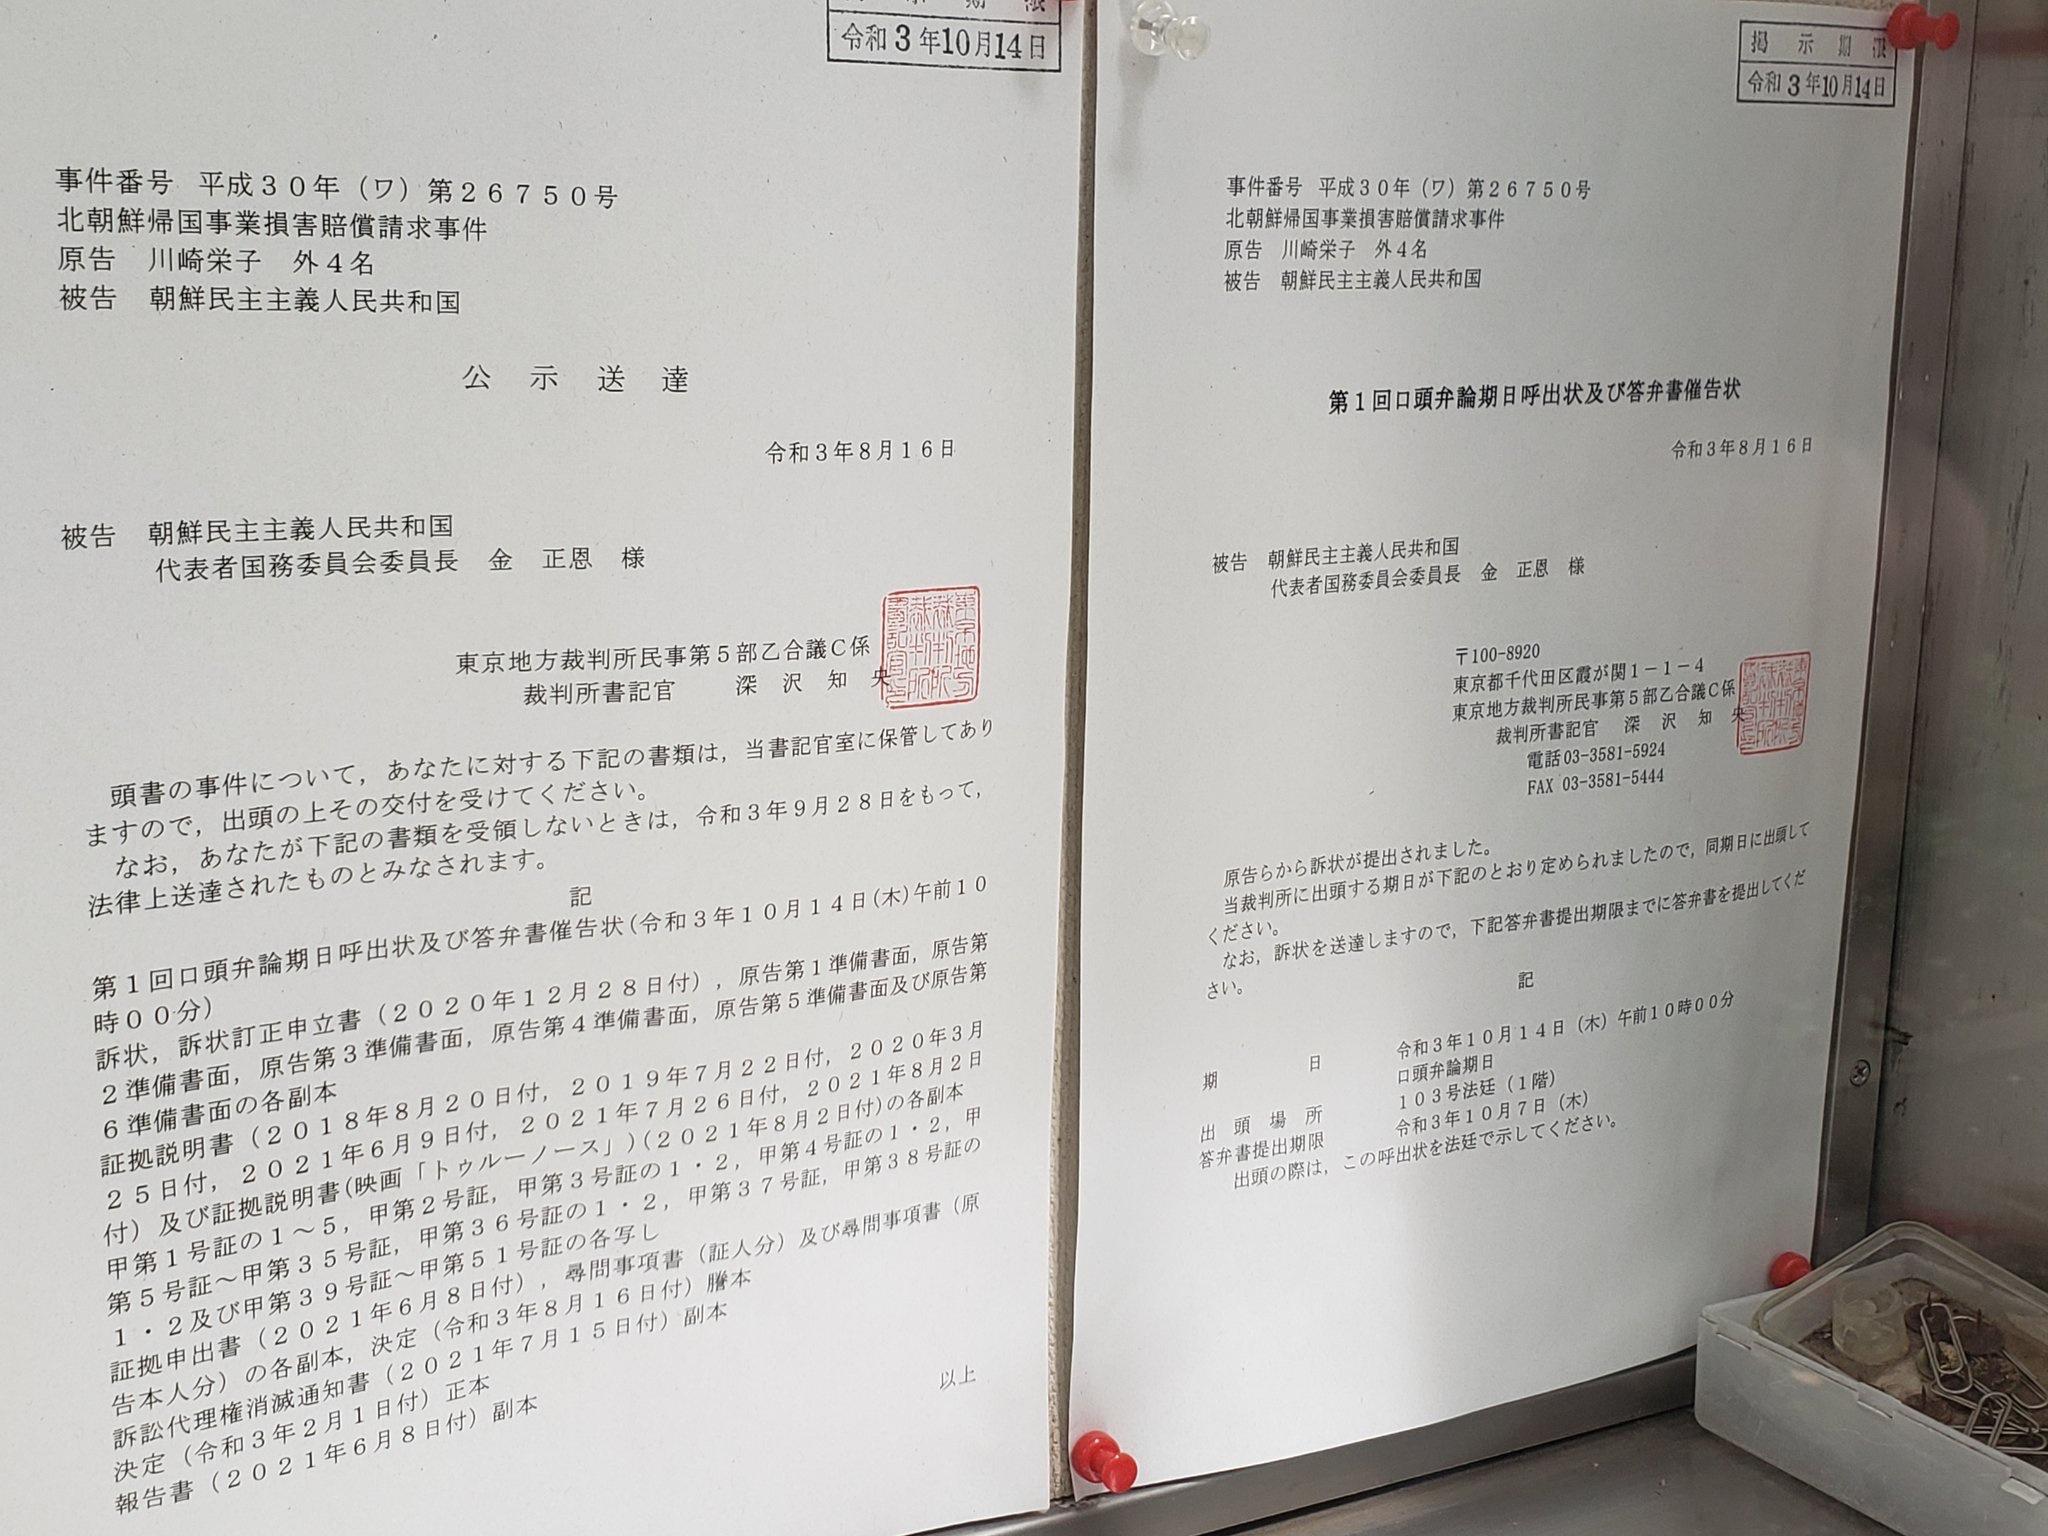 令和3年10月14日
事件番号　平成３０年（ワ）第２６７５０号
北朝鮮帰国事業損害賠償請求事件
原告　川崎栄子　外４名
被告　朝鮮民主主義人民共和国
公示送達
令和３年８月１６日
被告　朝鮮民主主義人民共和国
代表者国務委員会委員長　金　正恩　様
東京地方裁判所民事第５部乙合議Ｃ係
裁判所書記官　深沢知央
頭書の事件について，あなたに対する下記の書類は，当書記官室に保管してあり
ますので，出頭の上その交付を受けてください。
なお，あなたが下記の書類を受領しないときは，令和３年９月２８日をもって，
法律上送達されたものとみなされます。
記
第１回口頭弁論期日呼出状及び答弁書催告状(令和３年１０月１４日(木)午前１０
時００分)
訴状，訴状訂正申立書（２０２０年１２月２８日付），原告第１準備書面，原告第
２準備書面，原告第３準備書面，原告第４準備書面，原告第５準備書面及び原告第
６準備書面の各副本
証拠説明書（２０１８年８月２０日付，２０１９年７月２２日付，２０２０年３月
２５日付，２０２１年６月９日付，２０２１年７月２６日付，２０２１年８月２日
付）及び証拠説明書(映画「トゥルーノース」)(２０２１年８月２日付)の各副本
甲第１号証の１～５，甲第２号証，甲第３号証の１・２，甲第４号証の１・２，甲
第５号証～甲第３５号証，甲第３６号証の１・２，甲第３７号証，甲第３８号証の
１・２及び甲第３９号証～甲第５１号証の各写し
証拠申出書（２０２１年６月８日付），尋問事項書（証人分）及び尋問事項書（原
告本人分）の各副本，決定（令和３年８月１６日付）謄本
訴訟代理権消滅通知書（２０２１年７月１５日付）副本
決定（令和３年２月１日付）正本
報告書（２０２１年６月８日付）副本
以上
掲示期限
令和3年10月14日
事件番号　平成３０年（ワ）第２６７５０号
北朝鮮帰国事業損害賠償請求事件
原告　川崎栄子　外４名
被告　朝鮮民主主義人民共和国
第１回口頭弁論期日呼出状及び答弁書催告状
令和３年８月１６日
被告　朝鮮民主主義人民共和国
代表者国務委員会委員長　金　正恩　様
〒100-8920
東京都千代田区霞が関１－１－４
東京地方裁判所民事第５部乙合議Ｃ係
裁判所書記官　深沢知央
電話 03-3581-5924
FAX 03-3581-5444
原告らから訴状が提出されました。
当裁判所に出頭する期日が下記のとおり定められましたので，同期日に出頭して
ください。
なお，訴状を送達しますので，下記答弁書提出期限までに答弁書を提出してくだ
さい。
記
期日　令和３年１０月１４日（木）午前１０時００分
口頭弁論期日
出頭場所　１０３号法廷（１階）
答弁書提出期限　令和３年１０月７日（木）
出頭の際は，この呼出状を法廷で示してください。